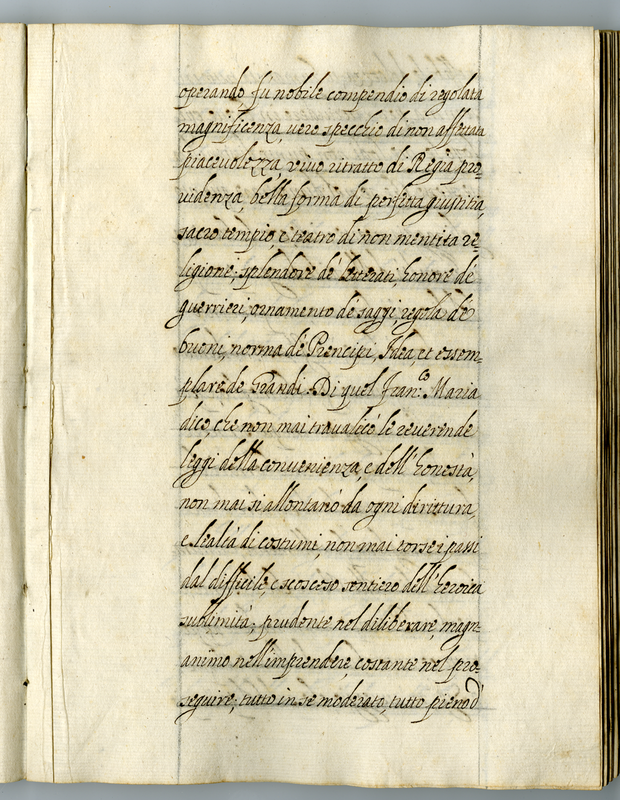 operando, fù nobile compendio di regolata
magnificenza, vero specchio di non affettata
piacevolezza, vivo ritratto di Regia pro-
videnza, bella forma di perfetta giustitia,
sacro tempio, e teatro di non mentita re-
ligione; splendore de' letterati, honore de'
guerrieri, ornamento de' saggi, regola de'
bueni, norma de' Prencipi, Idea, et essem-
plare de' Grandi. Di quel Fran:co Maria
dico, che non mai travalicò le reverende
leggi della convenienza, e dell'honestà,
non mai si allontanò da ogni dirittura,
e lealtà di costumi, non mai torse i passi
dal difficile, e scosceso sentiero dell'heroica
sublimità; prudente nel diliberare, magn-
animo nell'imprendere, costante nel pro-
seguire; tutto in se moderato, tutto pieno d'